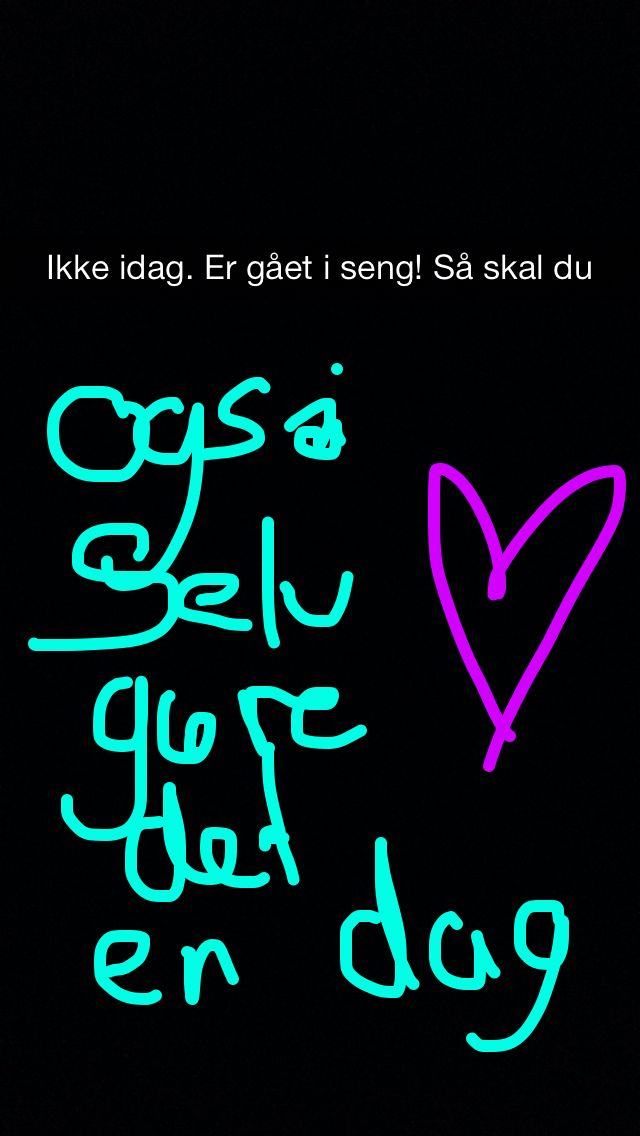 Ikke idag. Er gået i seng! Så skal du
også
selv
gøre
det
en dag